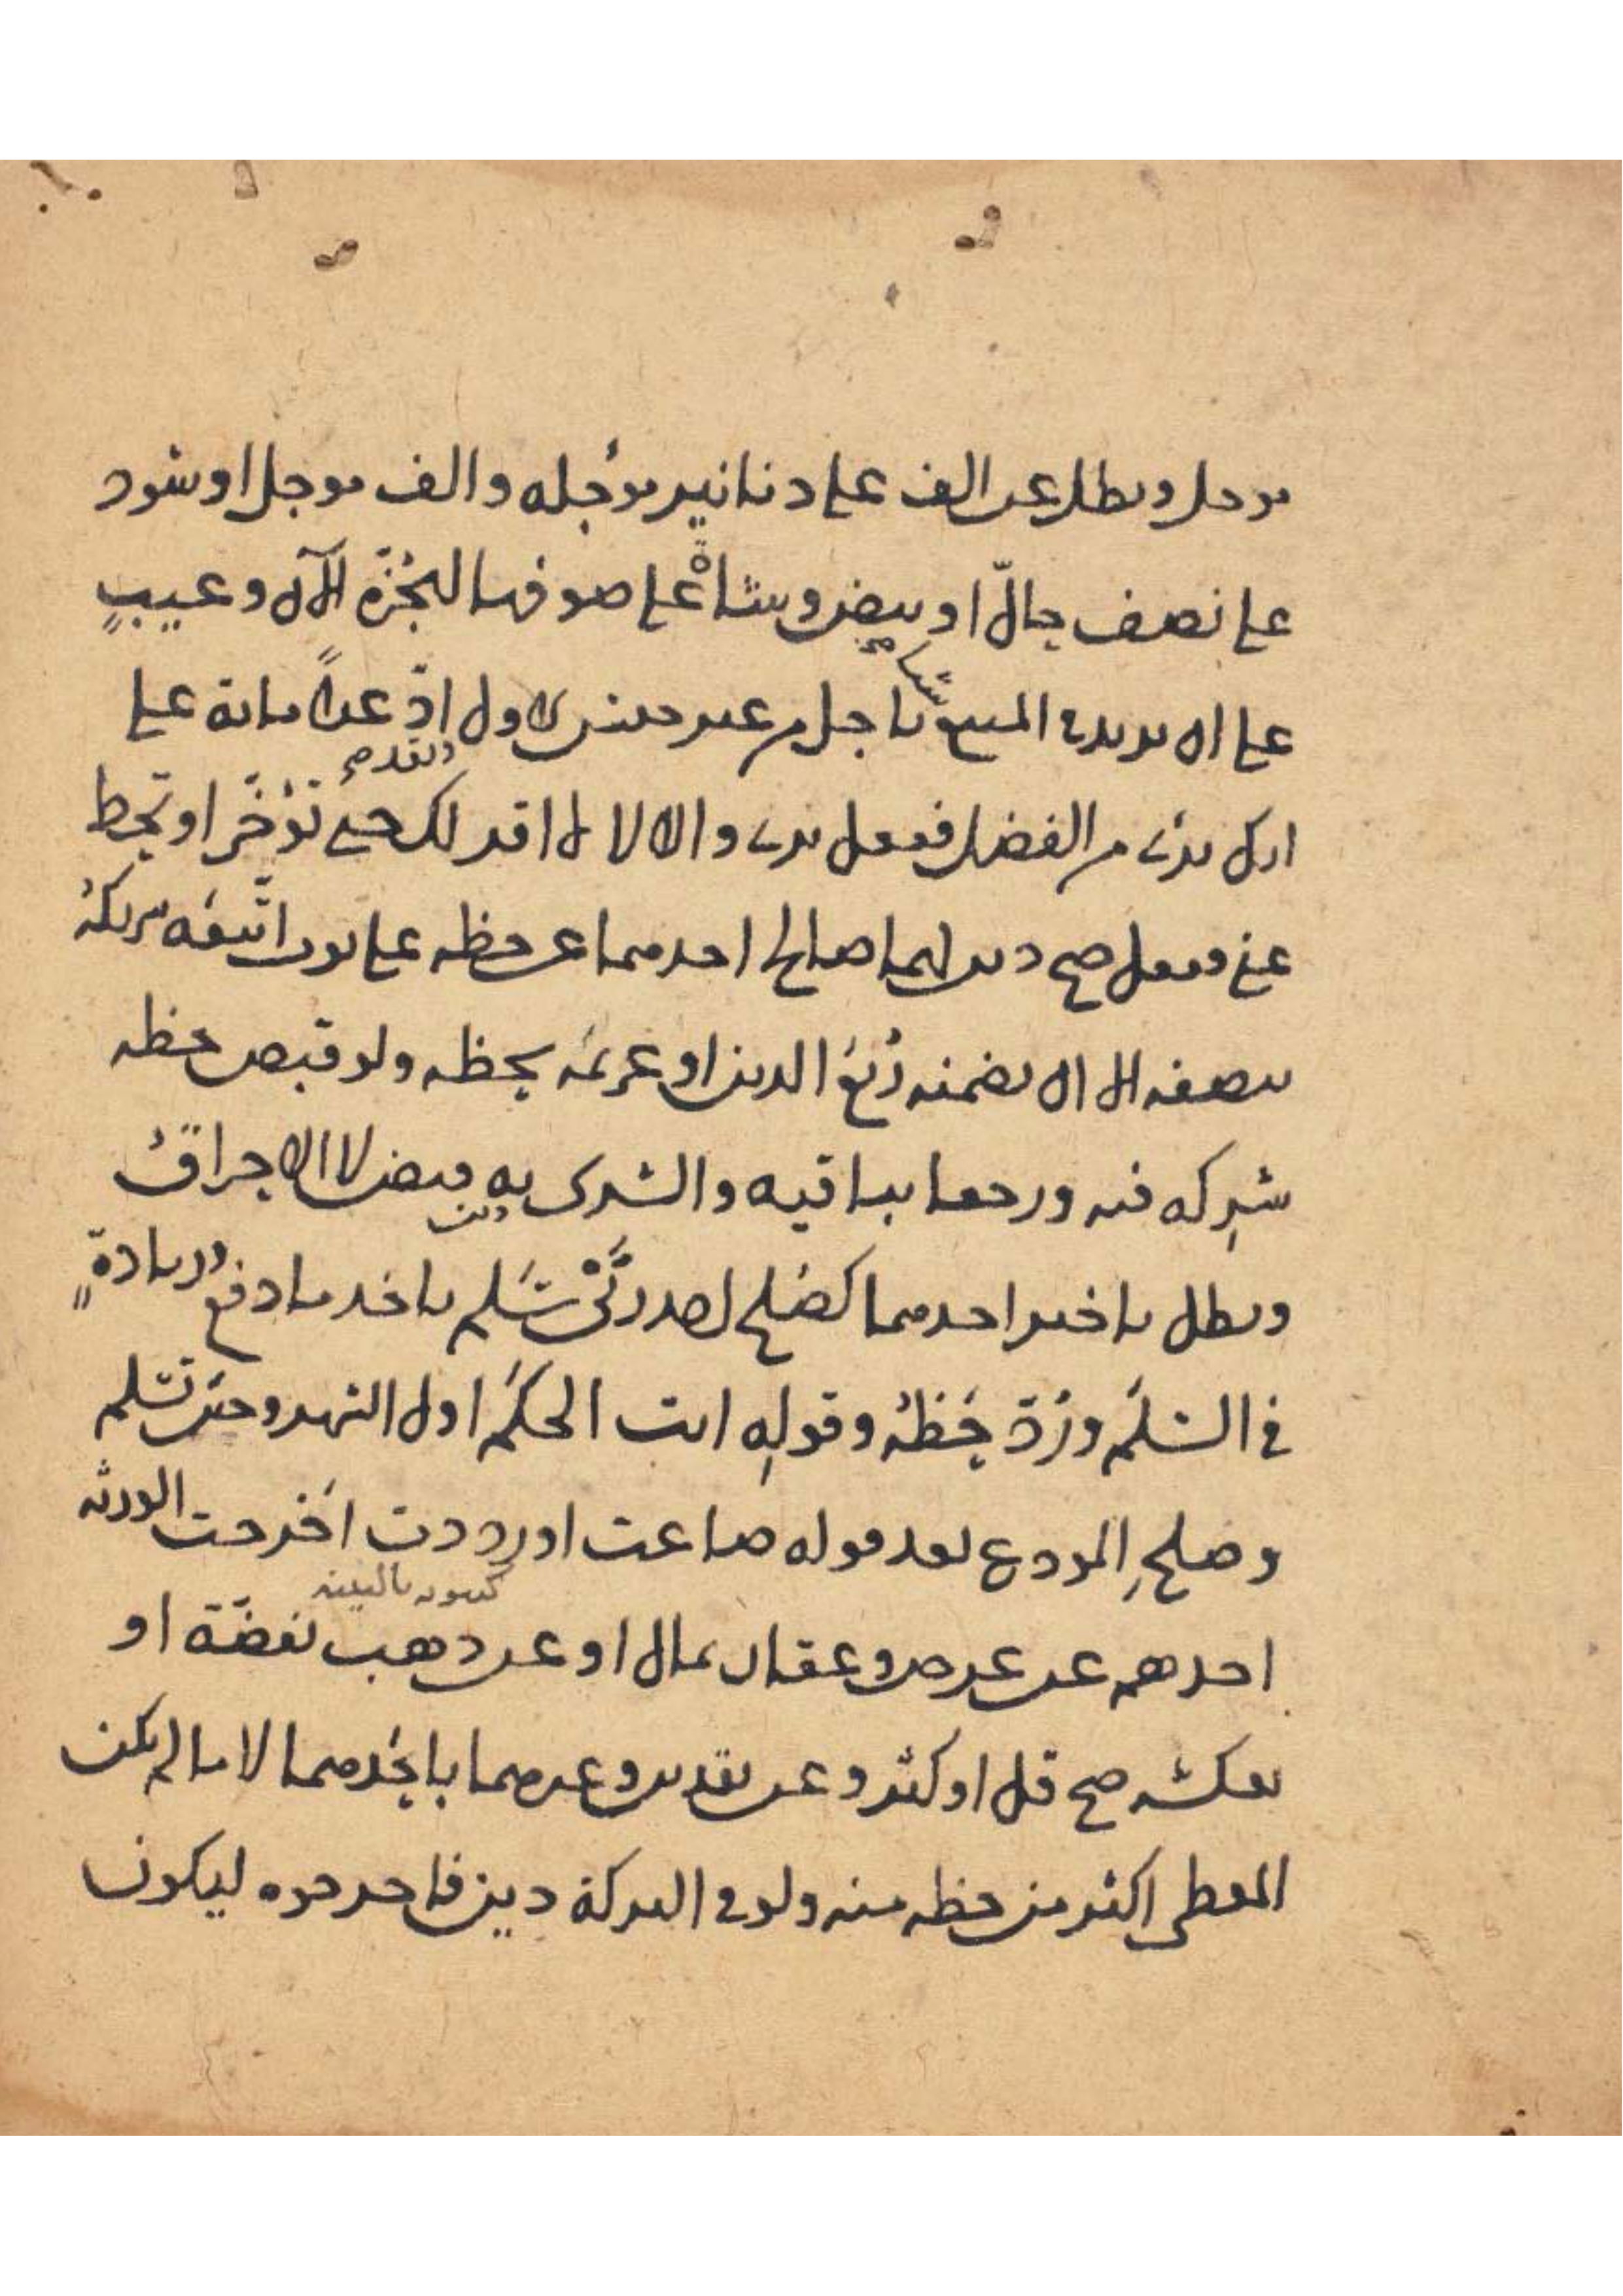 موجل وبطل عن الف على دنانير موجله والف موجل او سود
على نصف حال او بيض وشاة على صوفها لجزه الآن وعيب
على ان يزيده المبتاع شيا باجل من غير جنس الاول ادّ غدا مائة على
انك برئ من الفضل ففعل برئ والا لا لا اقر لك حتى تؤخر او تحط
عني ففعل صح دين لهما صالح احدهما عن حظه على ثوب اتبعه شريكه
بنصفه الا ان يضمنه ربع الدين او غريمه بحظه ولو قبض حظه
شركه فيه ورجعا بباقيه والشرى به قبض لا الابرا قبل دين
وبطل تاخير احدهما كصلح احد ربي سلم باخذ ما دفع وزيادة
في السلم ورد حظه وقوله انت الحكم اول الشهر وحين تسلم
وصلح المودع بعد قوله ضاعت او رددت اخرجت الورثة
احدهم عن عرض وعقار بمال او عن ذهب بفضة او
بعكسه صح قل او كثر وعن نقدين وغيرهما باحدهما لا ما لم يكن
المعطى اكثر من حظه منه ولو في التركة دين فاخرجوه ليكون